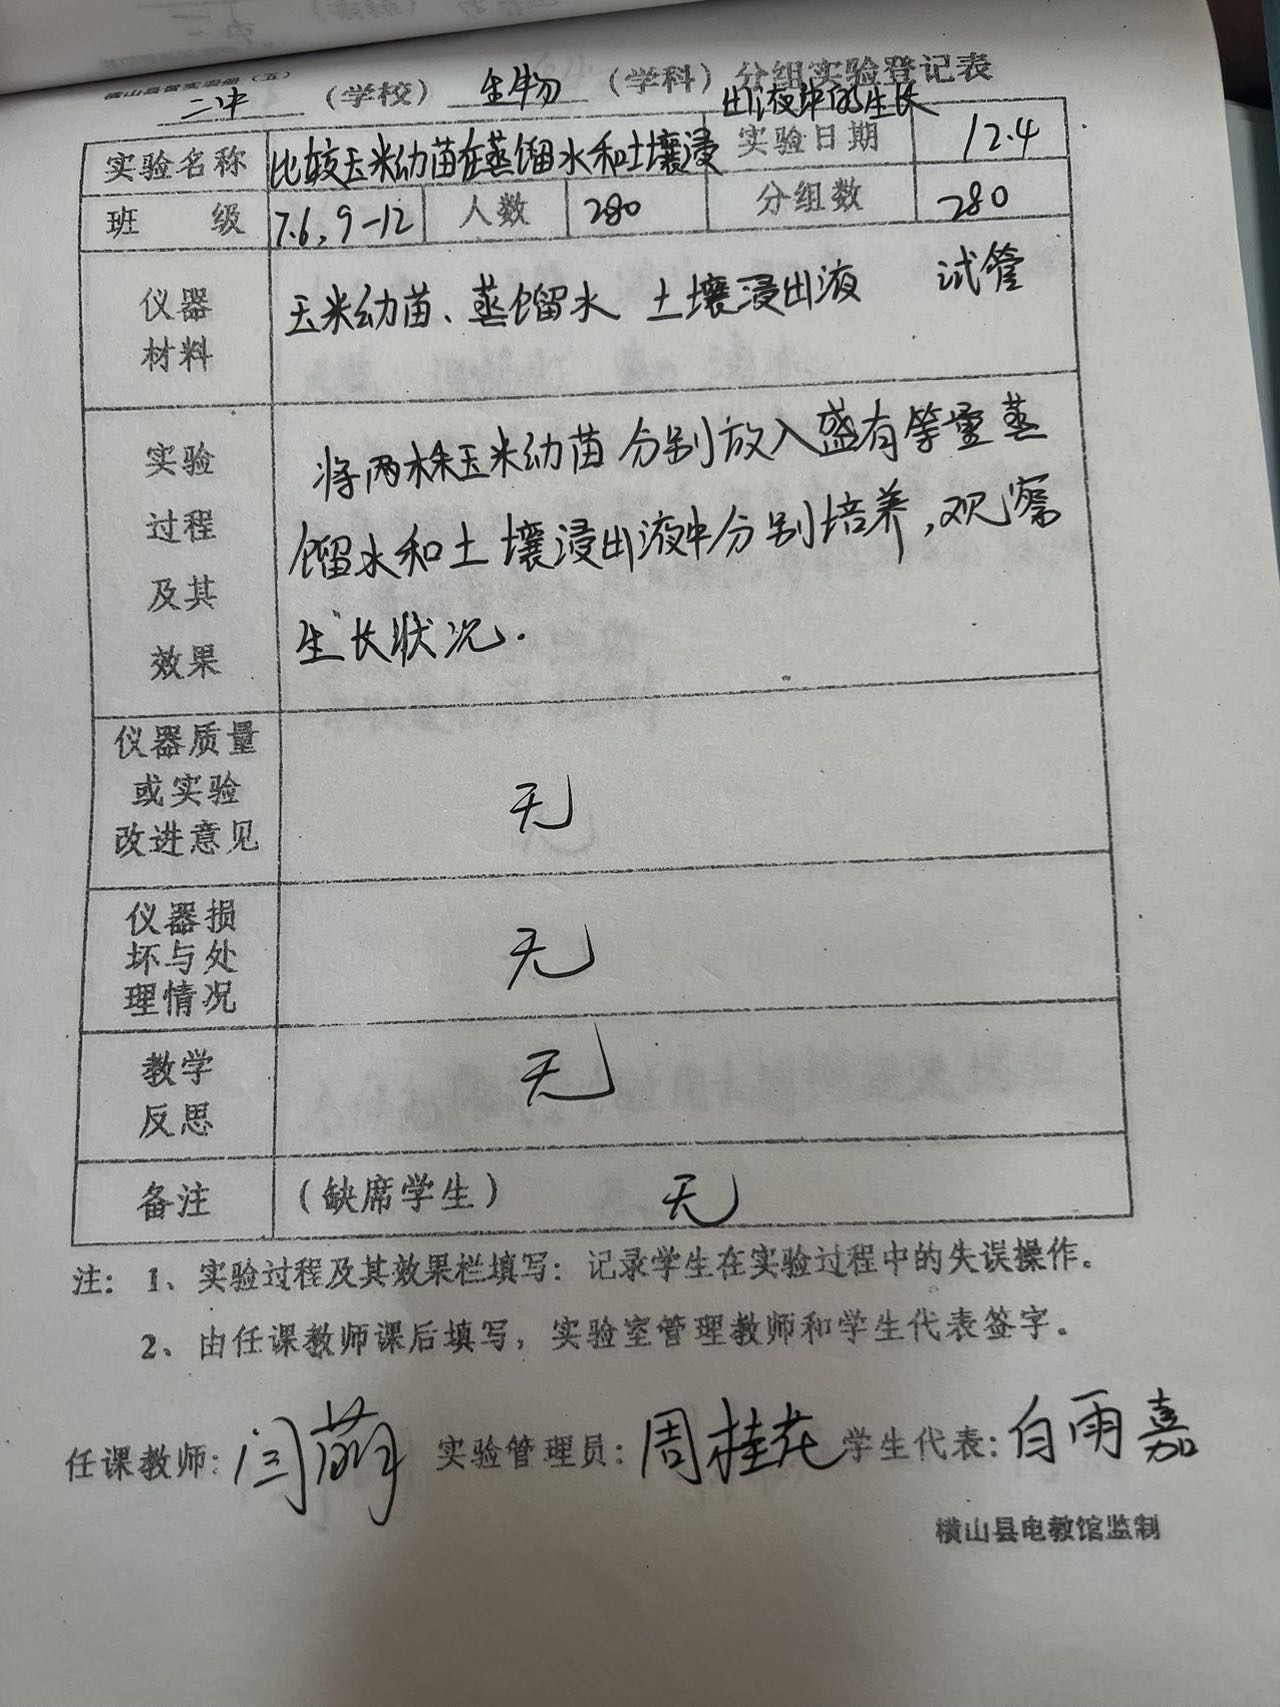 二中（学校）生物（学科）分组实验登记表
实验名称 比较玉米幼苗在蒸馏水和土壤浸出液中的生长 实验日期 12.4
班 级 7.6, 9-12 人数 280 分组数 280
仪器材料 玉米幼苗、蒸馏水 土壤浸出液 试管
实验过程及其效果
将两株玉米幼苗分别放入盛有等量蒸
馏水和土壤浸出液中分别培养,观察
生长状况.
仪器质量或实验改进意见 无
仪器损坏与处理情况 无
教学反思 无
备注 （缺席学生） 无
注：1、实验过程及其效果栏填写：记录学生在实验过程中的失误操作。
2、由任课教师课后填写，实验室管理教师和学生代表签字。
任课教师: 闫萌 实验管理员: 周桂花 学生代表: 白雨嘉
横山县电教馆监制